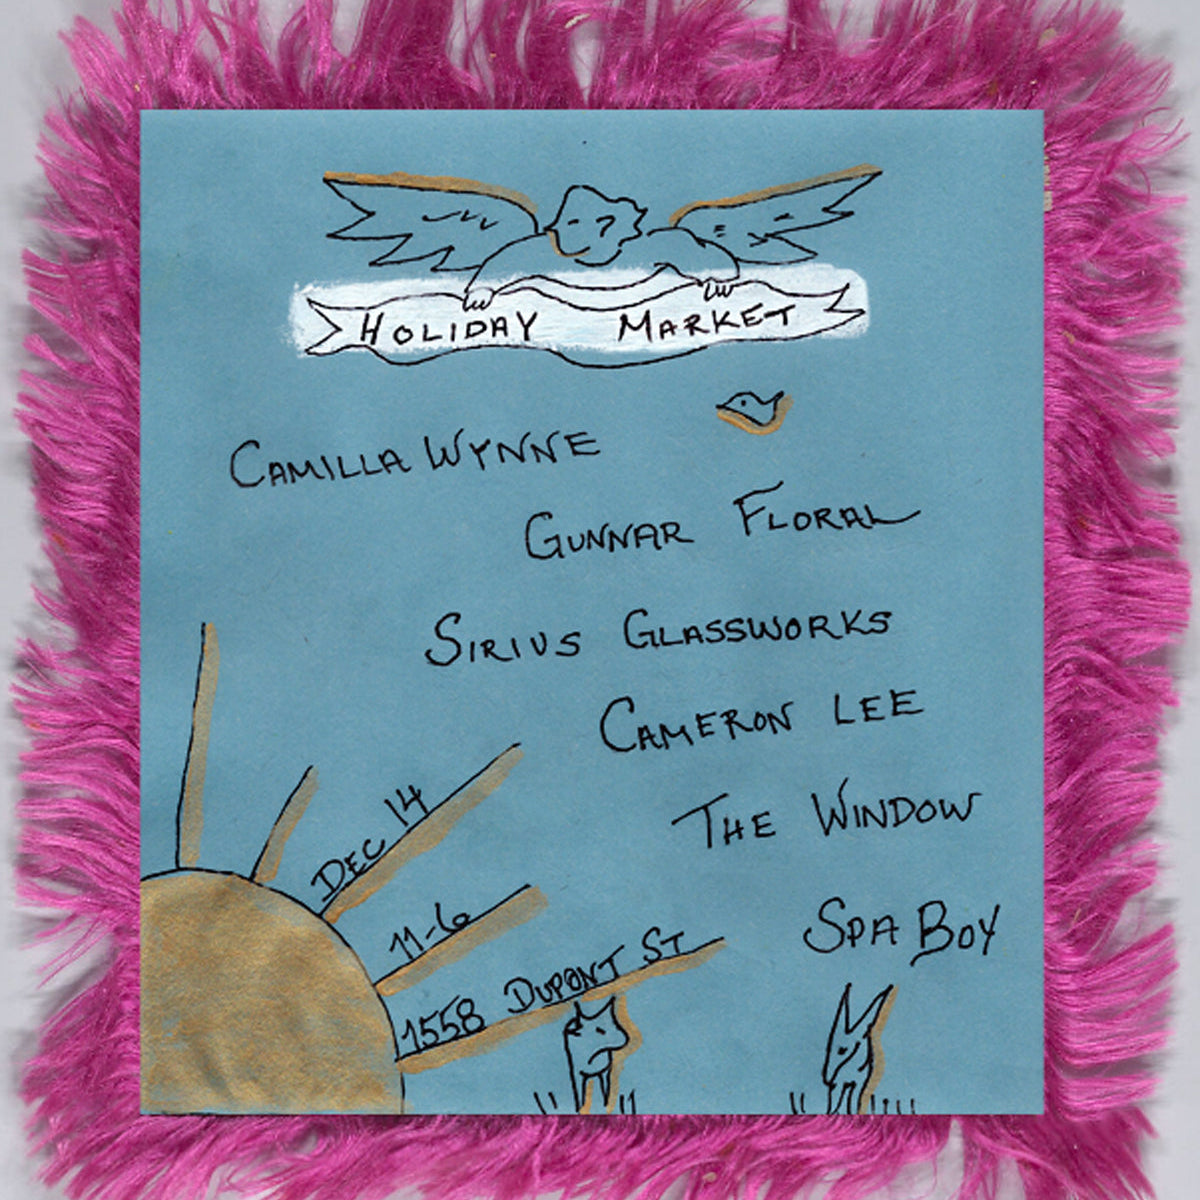 HOLIDAY MARKET
CAMILLA WYNNE
GUNNAR FLORAL
SIRIUS GLASSWORKS
CAMERON LEE
THE WINDOW
SPA BOY
DEC 14
11-6
1558 DUPONT ST